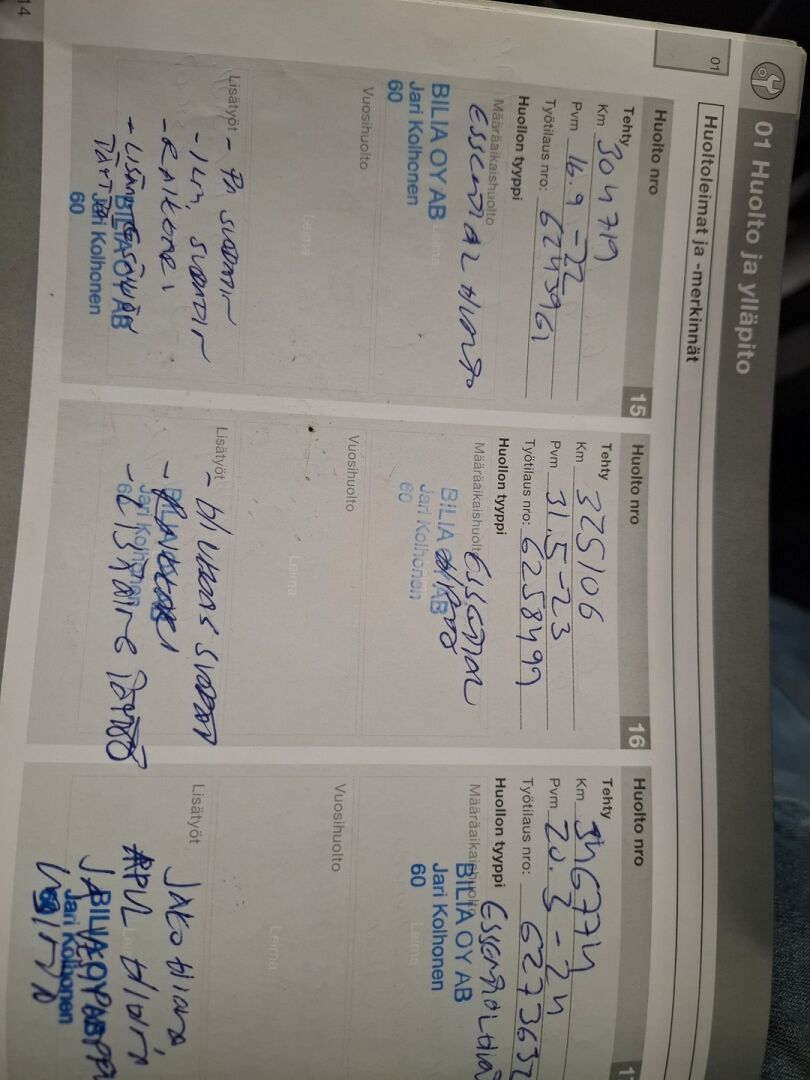 01 Huolto ja ylläpito
01
Huoltoleimat ja -merkinnät
Huolto nro 15
Tehty
Km 304719
Pvm 16.9 -22
Työtilaus nro: 6243961
Huollon tyyppi
Määräaikaishuolto
ESSENTIAL HUOLTO
BILIA OY AB
Jari Kolhonen
60
Leima
Vuosihuolto
Leima
Lisätyöt
- PA SUODATIN
- ILM. SUODATIN
- RAIKOMBI
BILIA OY AB
Jari Kolhonen
60
Huolto nro 16
Tehty
Km 325106
Pvm 31.5-23
Työtilaus nro: 6258499
Huollon tyyppi
Määräaikaishuolto
ESSENTIAL
BILIA OY AB
Jari Kolhonen
60
Vuosihuolto
Leima
Lisätyöt
BILIA OY AB
Jari Kolhonen
60
Huolto nro
Tehty
Km 346774
Pvm 20.3-24
Työtilaus nro: 6273632
Huollon tyyppi
Määräaikaishuolto
ESSENTIAL
BILIA OY AB
Jari Kolhonen
60
Leima
Vuosihuolto
Leima
Lisätyöt
JAKOHIHNA
APUL HIHNA
BILIA OY AB
Jari Kolhonen
60
14